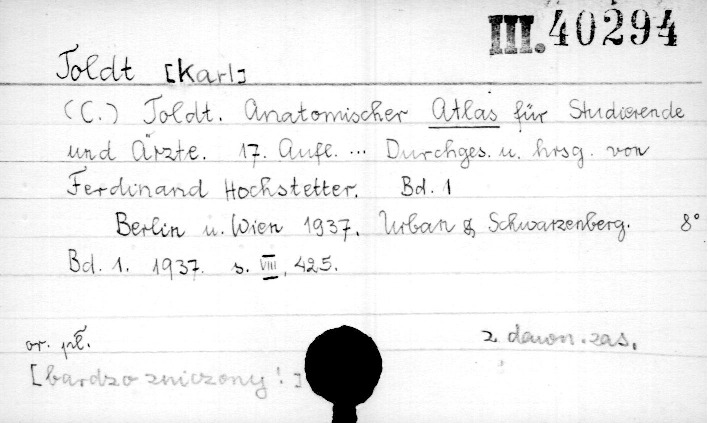 III.40294
Toldt [Karl]
(C.) Toldt. Anatomischer Atlas für Studierende
und Ärzte. 17. Aufl. ... Durchges. u. hrsg. von
Ferdinand Hochstetter. Bd. 1
Berlin u. Wien 1937. Urban & Schwarzenberg. 8°
Bd. 1. 1937. s. VIII, 425.
or. pł. z dawn. zas.
[bardzo zniczony!]